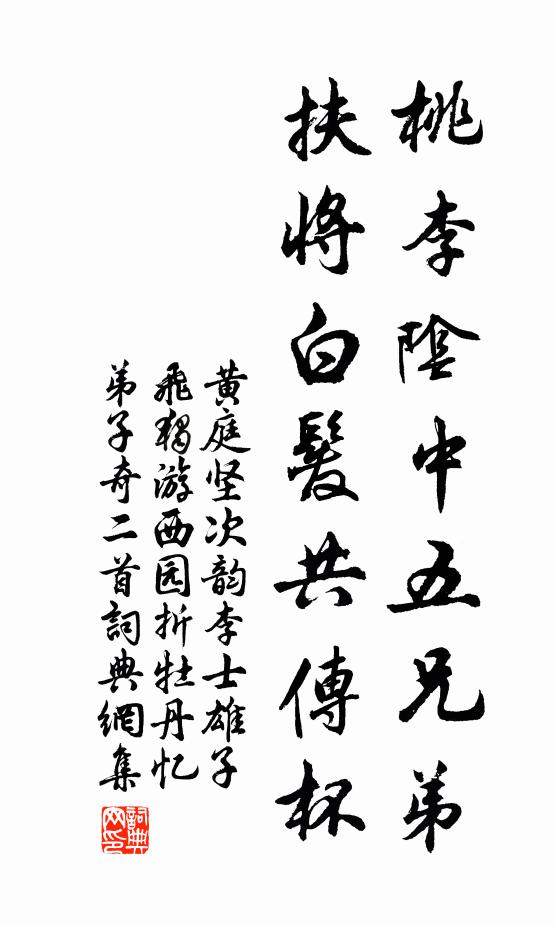 桃李陰中五兄弟
扶將白髮共傳杯
黄庭坚次韵李士雄子
飛獨游西园折牡丹忆
弟子奇二首詞典網集
詞典
网印